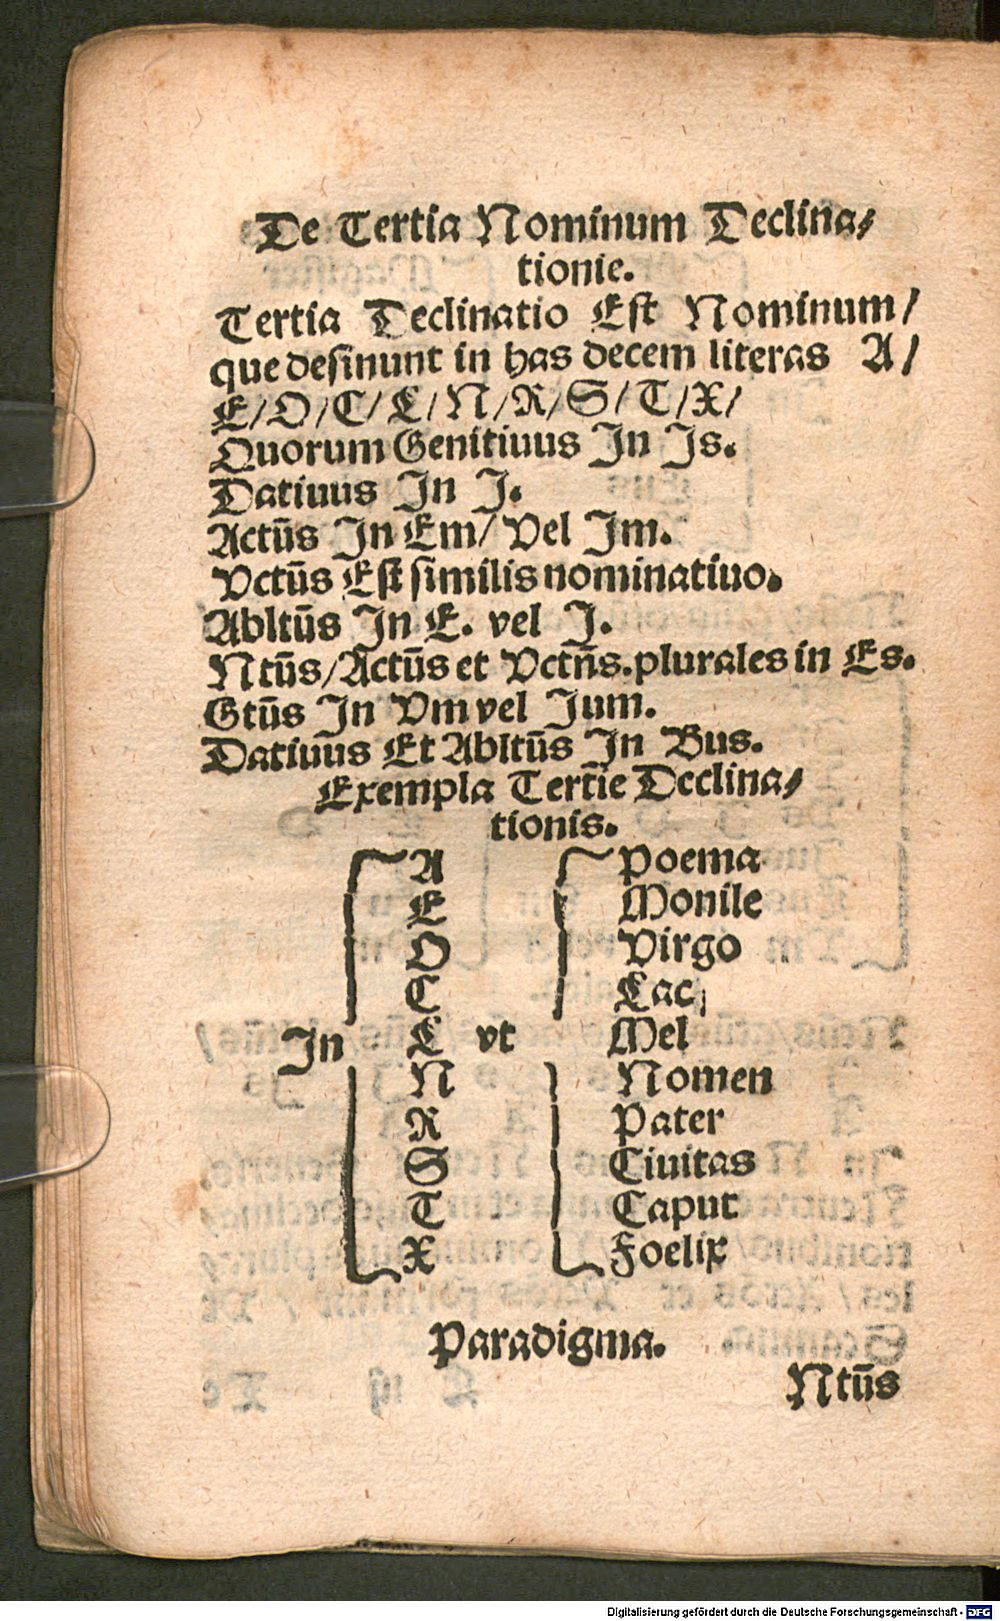 De Tertia Nominum Declina⸗
tionie.
Tertia Declinatio Est Nominum/
que desinunt in has decem literas A/
E/O/C/L/N/R/S/T/X/
Quorum Genitiuus In Is.
Datiuus In I.
Actūs In Em/ Vel Im.
Vctūs Est similis nominatiuo.
Abltūs In E. vel I.
Ntūs/Actūs et Vctn̄s.plurales in Es.
Gtūs In Vm vel Ium.
Datiuus Et Abltūs In Bus.
Exempla Tertie Declina⸗
tionis.
A Poema
E Monile
O Virgo
C Lac
In L vt Mel
N Nomen
R Pater
S Ciuitas
T Caput
X Foelix
Paradigma.
Ntūs
Digitalisierung gefördert durch die Deutsche Forschungsgemeinschaft - DFG